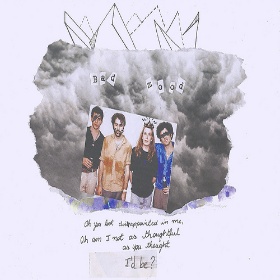 Bad Mood
Oh you look disappointed in me,
Oh am I not as thoughtful
as you thought
I'd be?